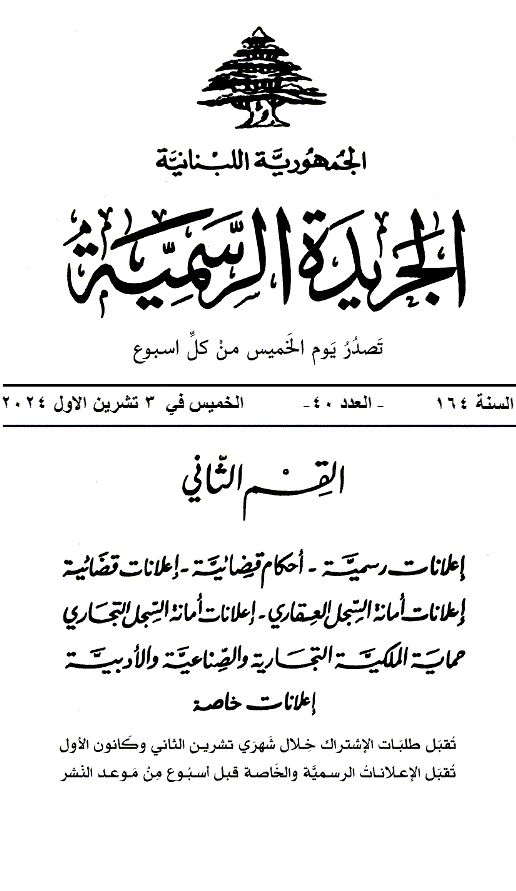 الجُمهُوريَّة اللبْنانيَّة
الجَريدَة الرَّسمِيَّة
تَصدُرُ يَوم الخَميس منْ كلِّ اسبوع
السنة ١٦٤ - العدد ٤٠- الخميس في ٣ تشرين الاول ٢٠٢٤
القِسْم الثّاني
إعلانات رسميَّة - أحكام قضائيَّة - إعلانات قضائية
إعلانات أمانة السِّجل العقاري - إعلانات أمانة السِّجل التجاري
حماية الملكيَّة التجارية والصِّناعيَّة والأدبيَّة
إعلانات خاصة
تُقبَل طلبَات الإشتراك خِلال شَهرَي تشرين الثاني وكَانون الأول
تُقبَل الإعلاناتُ الرسميَّة والخَاصة قبل أسبُوع مِنْ مَوعد النَشر